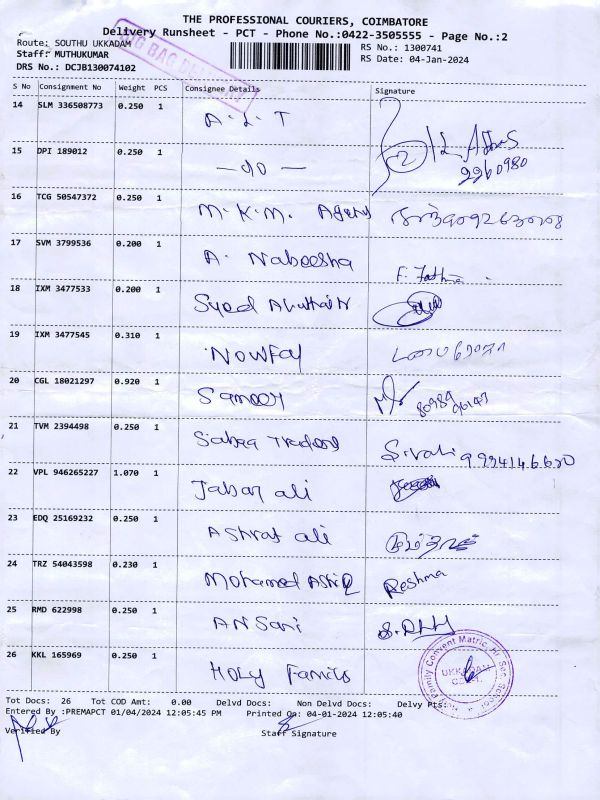 THE PROFESSIONAL COURIERS, COIMBATORE
Delivery Runsheet - PCT - Phone No.:0422-3505555 - Page No.:2
Route: SOUTHU UKKADAM
RS No.: 1300741
Staff: MUTHUKUMAR
RS Date: 04-Jan-2024
DRS No.: DCJB130074102
S No Consignment No Weight PCS Consignee Details Signature
14 SLM 336508773 0.250 1 A. L. T
15 DPI 189012 0.250 1 — do — 9960980
16 TCG 50547372 0.250 1 M. K. M. Agency
17 SVM 3799536 0.200 1 A. Nabeesha F. Fathima
18 IXM 3477533 0.200 1 Syed
19 IXM 3477545 0.310 1 Nowfal
20 CGL 18021297 0.920 1 Sameer
21 TVM 2394498 0.250 1 Traders 9994146620
22 VPL 946265227 1.070 1 Jabar ali
23 EDQ 25169232 0.250 1 Ashraf ali
24 TRZ 54043598 0.230 1 Mohamed Ashiq Reshma
25 RMD 622998 0.250 1 ANSari
26 KKL 165969 0.250 1 HOLY Family
Family Convent Matric. Hr. Sec. School
UKKADAM
Tot Docs: 26 Tot COD Amt: 0.00 Delvd Docs: Non Delvd Docs: Delvy Pts:
Entered By :PREMAPCT 01/04/2024 12:05:45 PM Printed On: 04-01-2024 12:05:40
Verified By Staff Signature